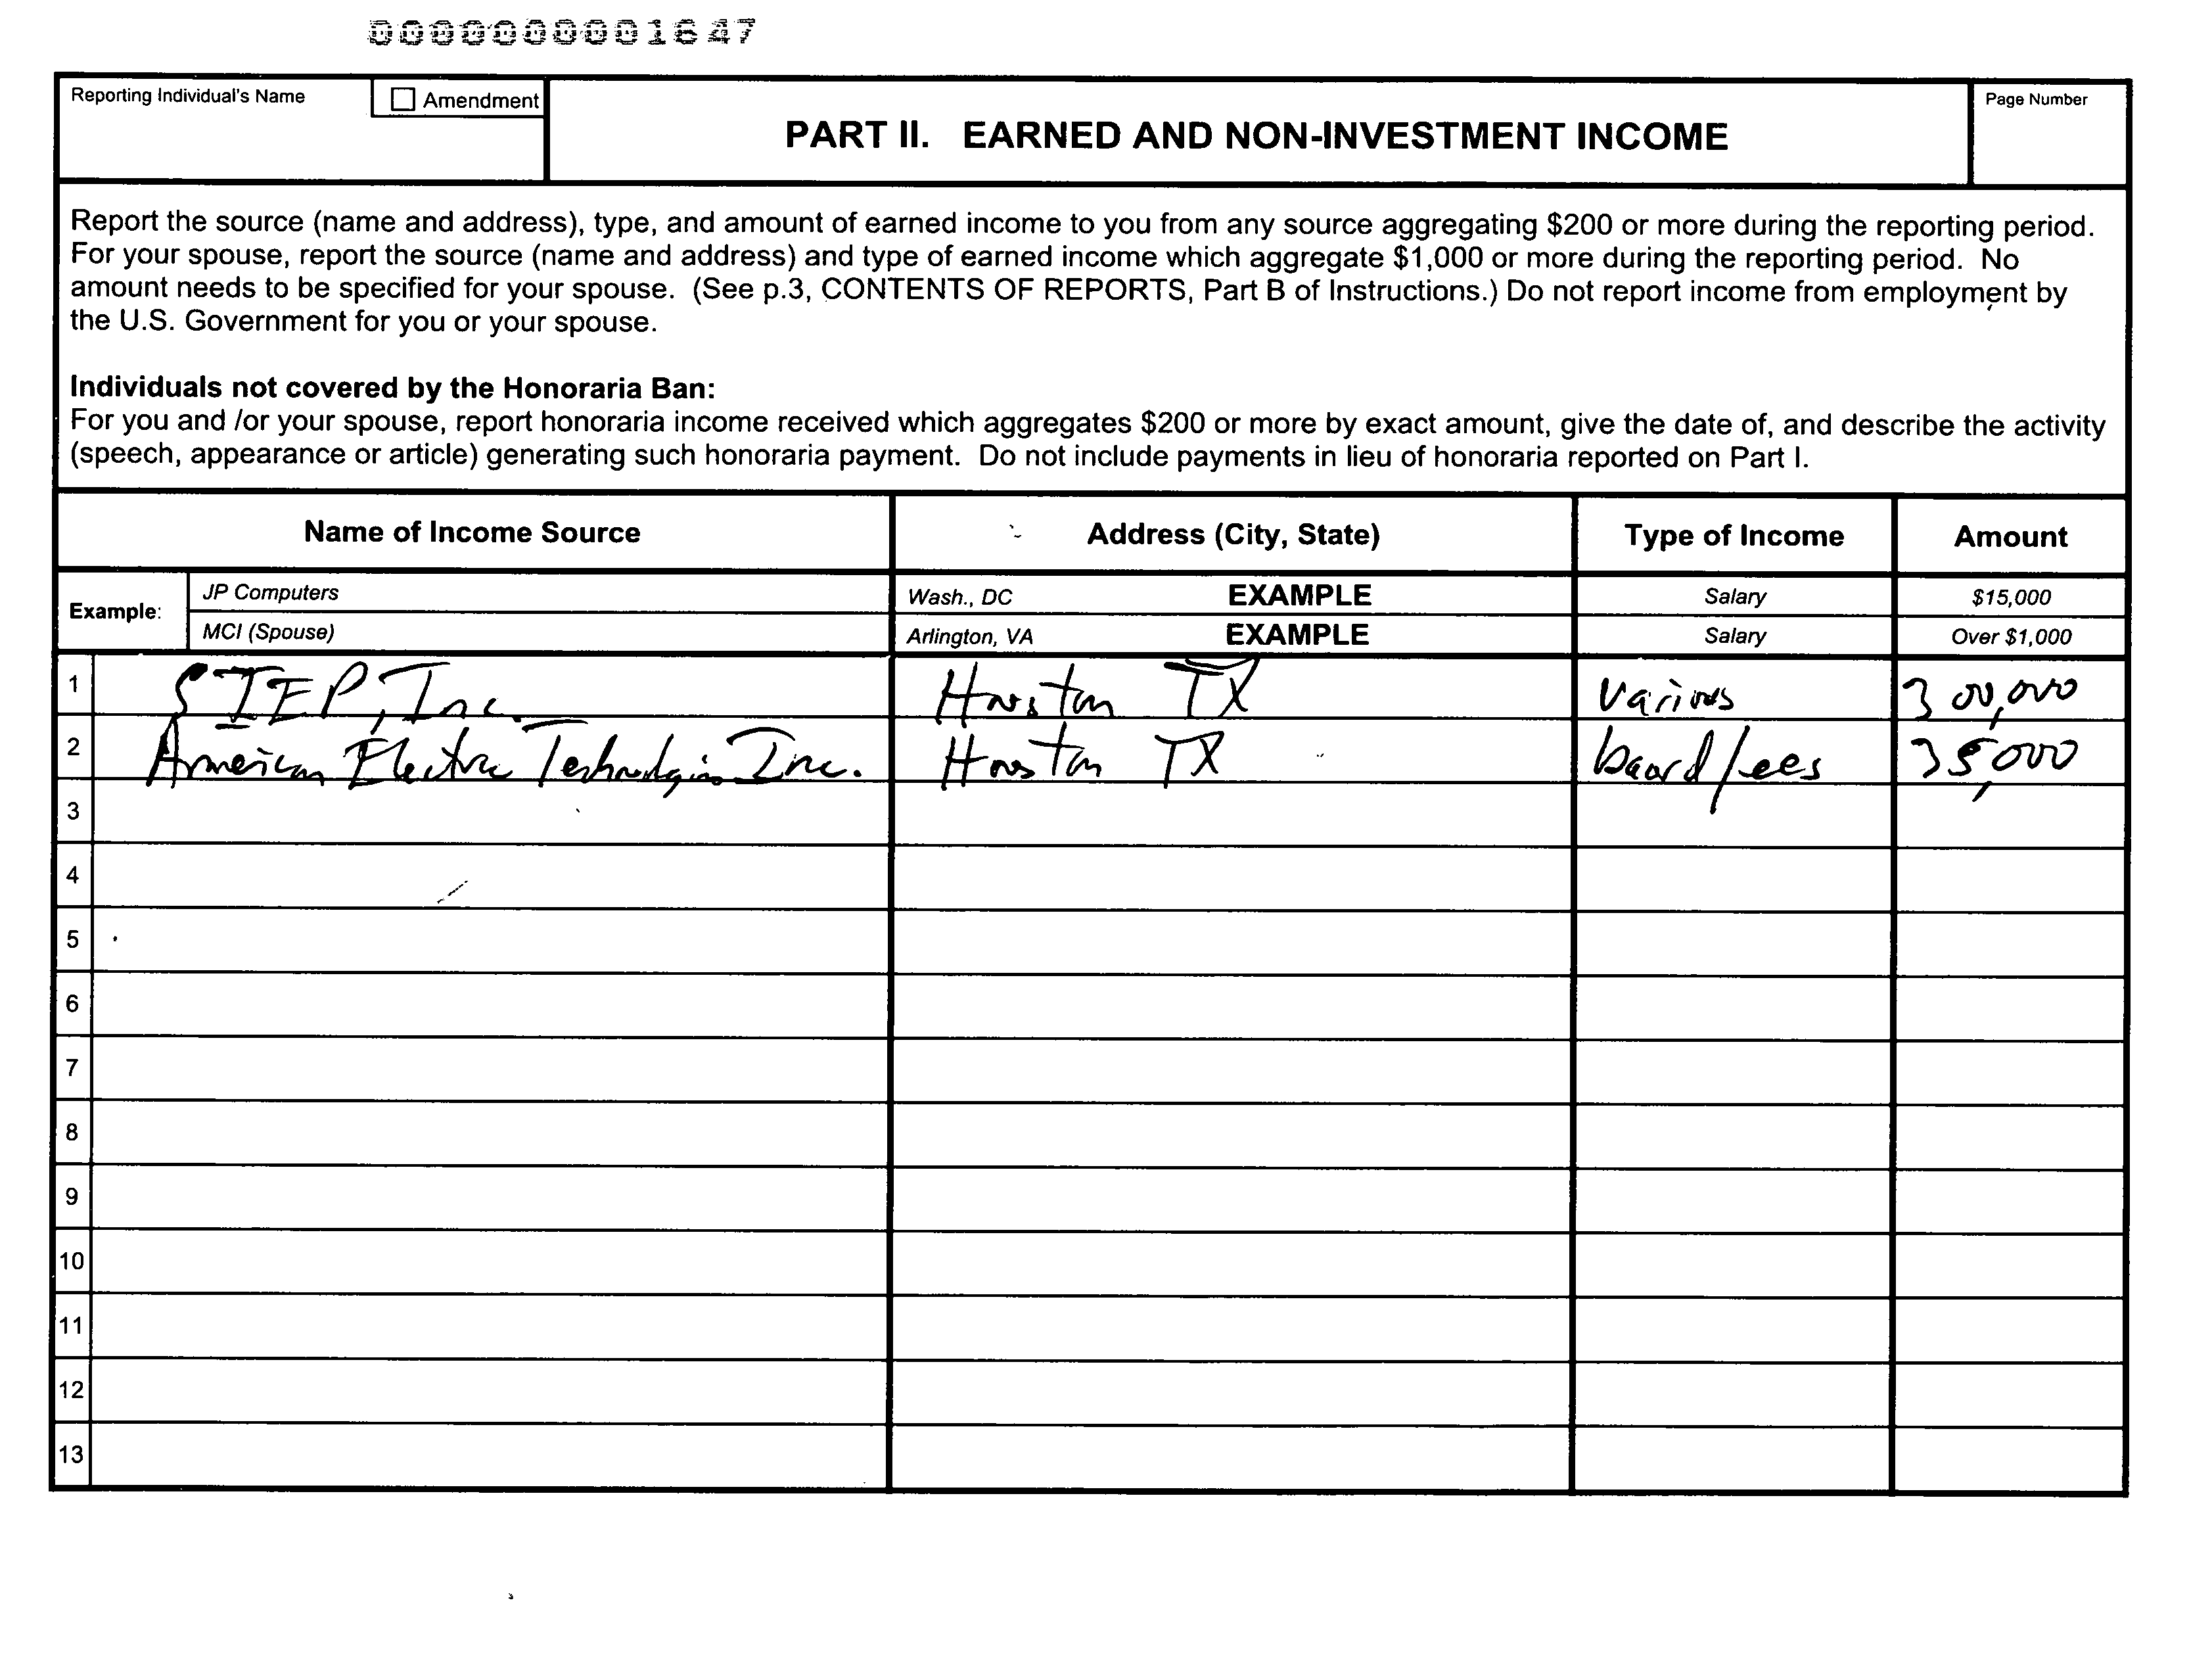 0000000001647
Reporting Individual's Name
☐ Amendment
PART II. EARNED AND NON-INVESTMENT INCOME
Page Number
Report the source (name and address), type, and amount of earned income to you from any source aggregating $200 or more during the reporting period.
For your spouse, report the source (name and address) and type of earned income which aggregate $1,000 or more during the reporting period. No
amount needs to be specified for your spouse. (See p.3, CONTENTS OF REPORTS, Part B of Instructions.) Do not report income from employment by
the U.S. Government for you or your spouse.
Individuals not covered by the Honoraria Ban:
For you and /or your spouse, report honoraria income received which aggregates $200 or more by exact amount, give the date of, and describe the activity
(speech, appearance or article) generating such honoraria payment. Do not include payments in lieu of honoraria reported on Part I.
Name of Income Source Address (City, State) Type of Income Amount
Example:
JP Computers Wash., DC EXAMPLE Salary $15,000
MCI (Spouse) Arlington, VA EXAMPLE Salary Over $1,000
1 STEP, Inc. Houston TX various 300,000
2 American Electric Technologies Inc. Houston TX board fees 35,000
3
4
5
6
7
8
9
10
11
12
13